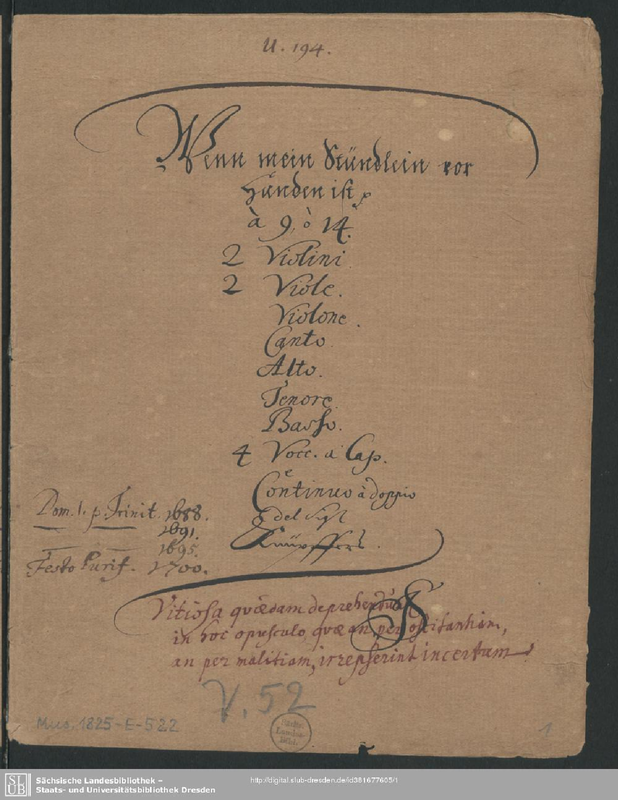 U. 194.
Wenn mein Stündlein vor
handen ist
à 9. ò 14.
2 Violini
2 Viole.
Violone.
Canto
Alto.
Tenore
Basso.
4 Voce. à Cap.
e
Continuo à doppio
del Sigr
Knüpffers.
Dom. 1. p. Trinit. 1688.
1691.
1695.
Festo Purif. 1700.
Vitiosa quædam deprehendũtur
in hoc opusculo, quæ an per oscitantiam,
an per malitiam, irrepserint incertum
V. 52
Mus. 1825-E-522
1
Sächs.
Landes-
Bibl.
SLUB
Sächsische Landesbibliothek –
Staats- und Universitätsbibliothek Dresden
http://digital.slub-dresden.de/id381677605/1